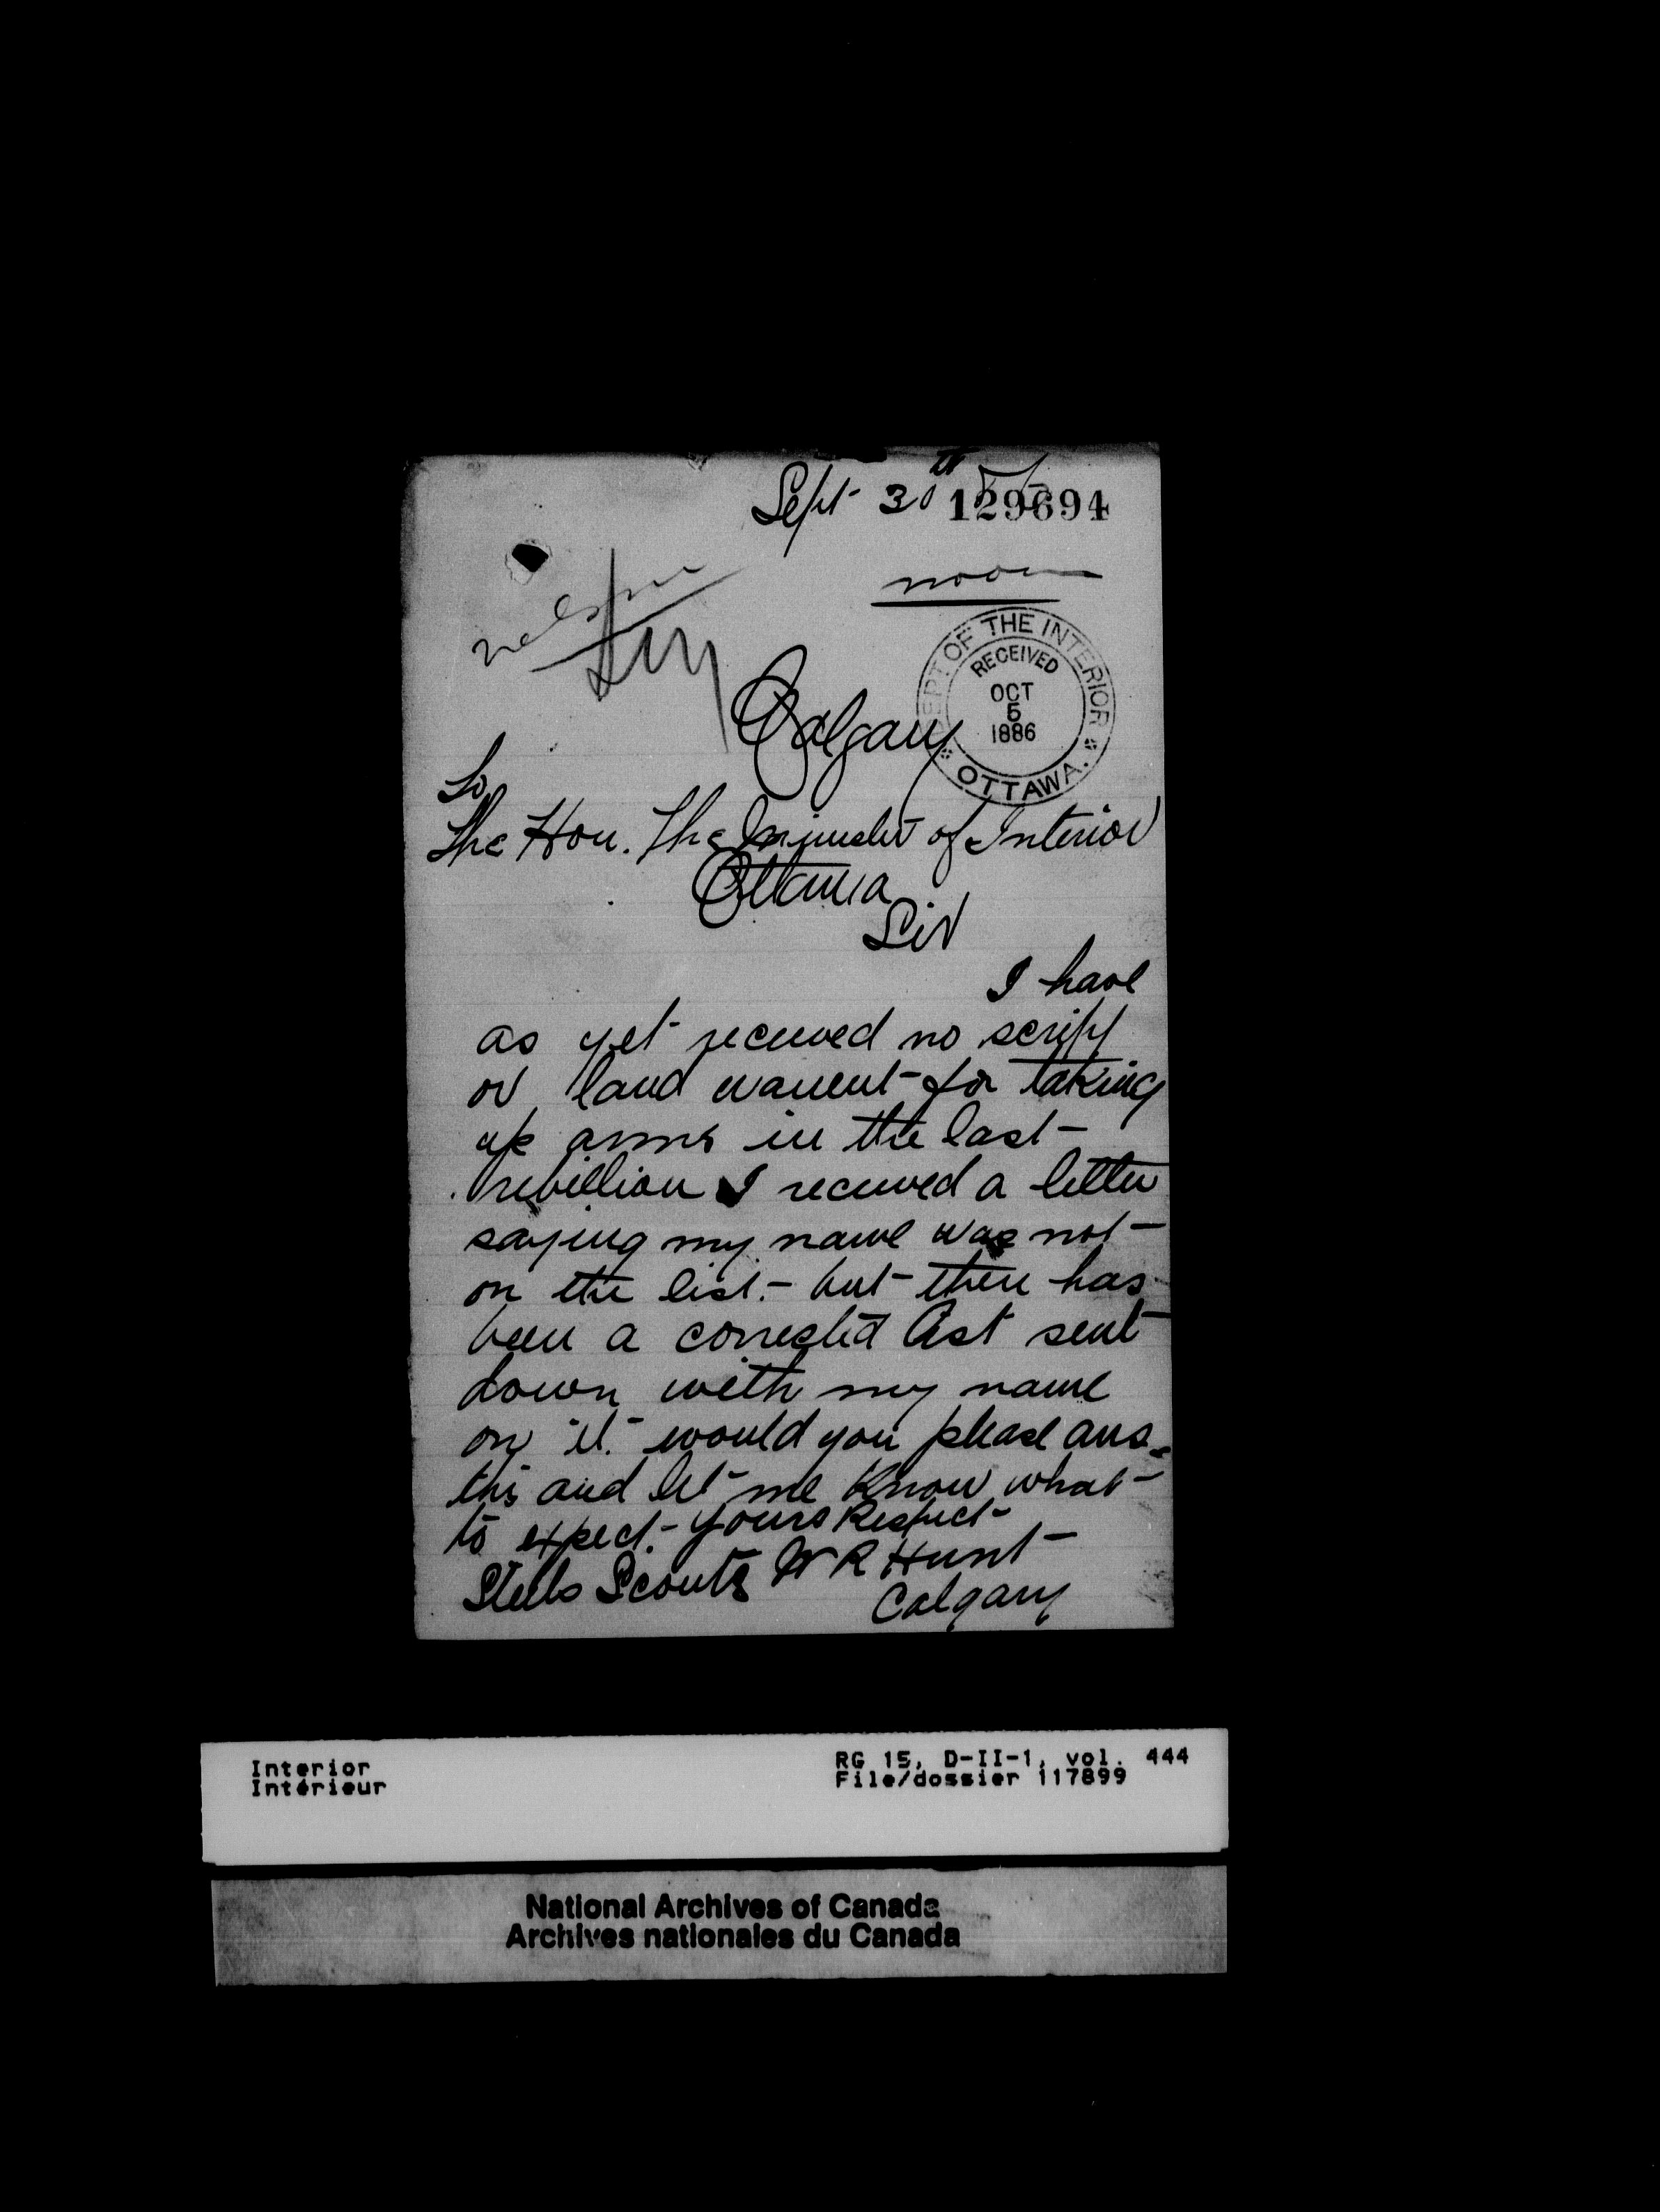 Sept 30th
129694
noon
Nelson
DEPT OF THE INTERIOR
RECEIVED
OCT
5
1886
OTTAWA.
Calgary
To
The Hon. The Minister of Interior
Ottawa
Sir
I have
as yet received no script
or land warrent for taking
up arms in the last
rebellion I received a letter
saying my name was not
on the list. but there has
been a corrected list sent
down with my name
on it. would you please ans.
this and let me know what
to expect. Yours Respect
Steels Scouts W R Hunt
Calgary
Interior RG 15, D-II-1, vol. 444
Intérieur File/dossier 117899
National Archives of Canada
Archives nationales du Canada